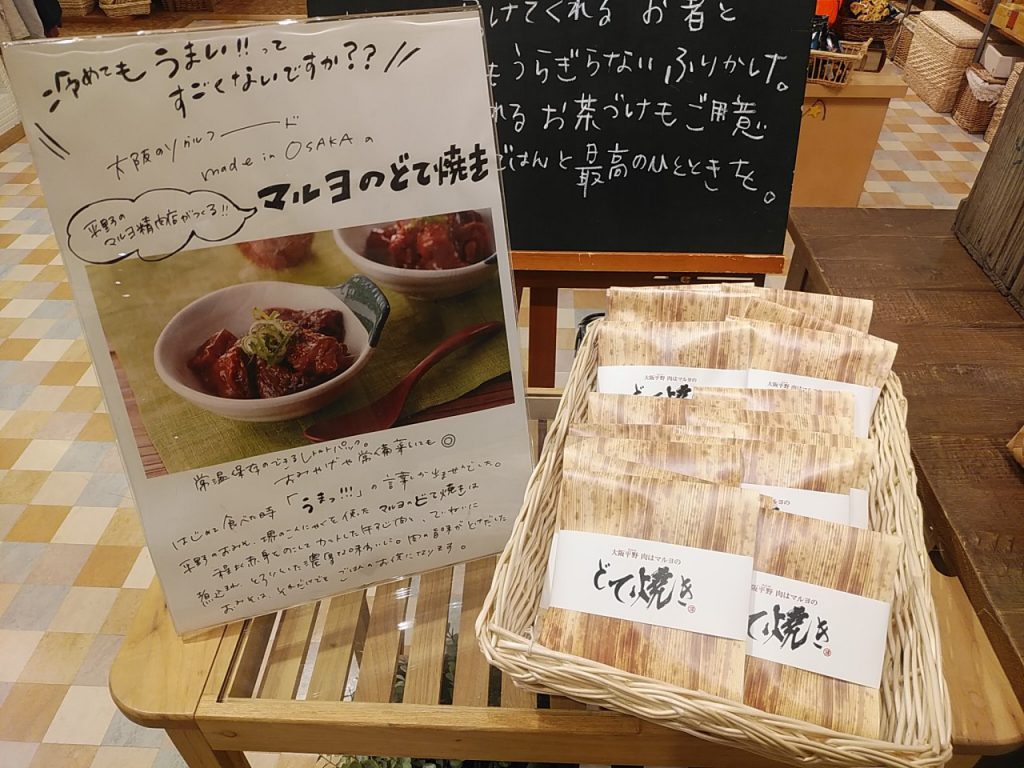 冷めても うまい!!って
すごくないですか??
大阪のソウルフード
made in OSAKAの
マルヨのどて焼き
平野の
マルヨ精肉店がつくる!!
常温保存のできるレトルトパック。
おみやげや常備菜にも◎
はじめて食べた時 「うまっ!!!」の言葉しか出ませんでした。
平野のおみそ、堺のこんにゃくを使った マルヨのどて焼きは
煮込まれ、とろりとした濃厚な味わいに。肉の旨味がとけだした
おみそは、それだけでも ごはんのお供になります。
けてくれる お者と
もうらぎらない ふりかけ。
れる お茶づけもご用意
ごはんと最高のひとときを。
大阪平野 肉はマルヨの
どて焼き
大阪平野 肉はマルヨの
大阪平野 肉はマルヨの
どて焼き
阪平野 肉はマルヨの
て焼き